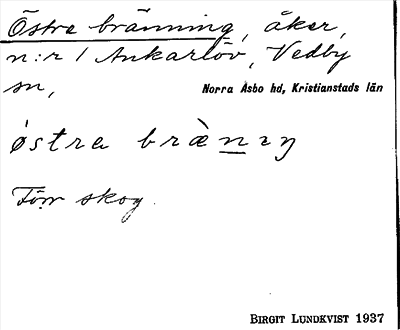 Östra bränning, åker,
n:r 1 Ankarlöv, Vedby
sn,
Norra Åsbo hd, Kristianstads län
östra bràn̲ıŋ
Förr skog.
BIRGIT LUNDKVIST 1937